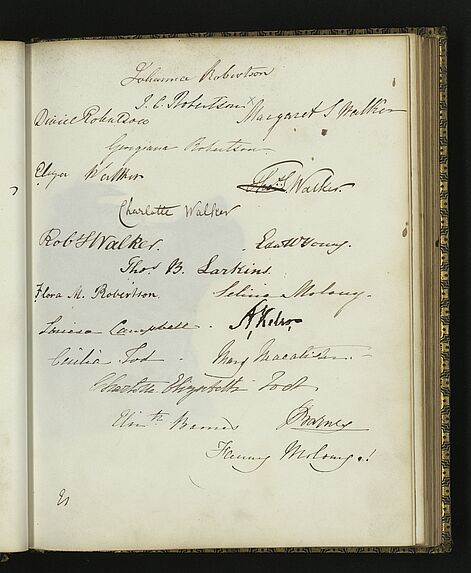 Johanna Robertson
J. C. Robertson
Daniel Robertson Margaret S Walker
Georgiana Robertson
Eliza Walker Thos S Walker.
Charlotte Walker
Robt S Walker. Edwd Young.
Thos B. Larkins
Flora M. Robertson. Selina Molony.
Louisa Campbell. A, Kelso,
Cecilia Tod Mary Macalister.
Charlotte Elizabeth Tod
Elizth Barnes Barnes
Fanny Molony.!